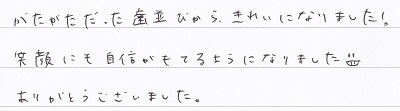 がたがただった歯並びから、きれいになりました!
笑顔にも自信がもてるようになりました
ありがとうございました。